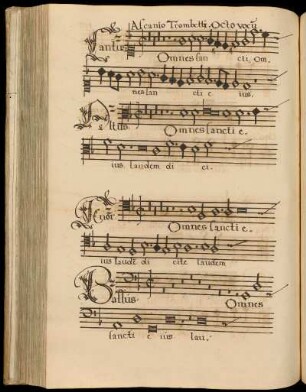 Ascanio Trombetti. Octo vocũ
Cantus
Omnes san cti Om,
nes san cti e ius.
Altus
Omnes sancti e.
ius laudem di ci.
Tenor
Omnes sancti e.
ius laudẽ di cite laudem
Bassus
Omnes
sancti e ius lau.